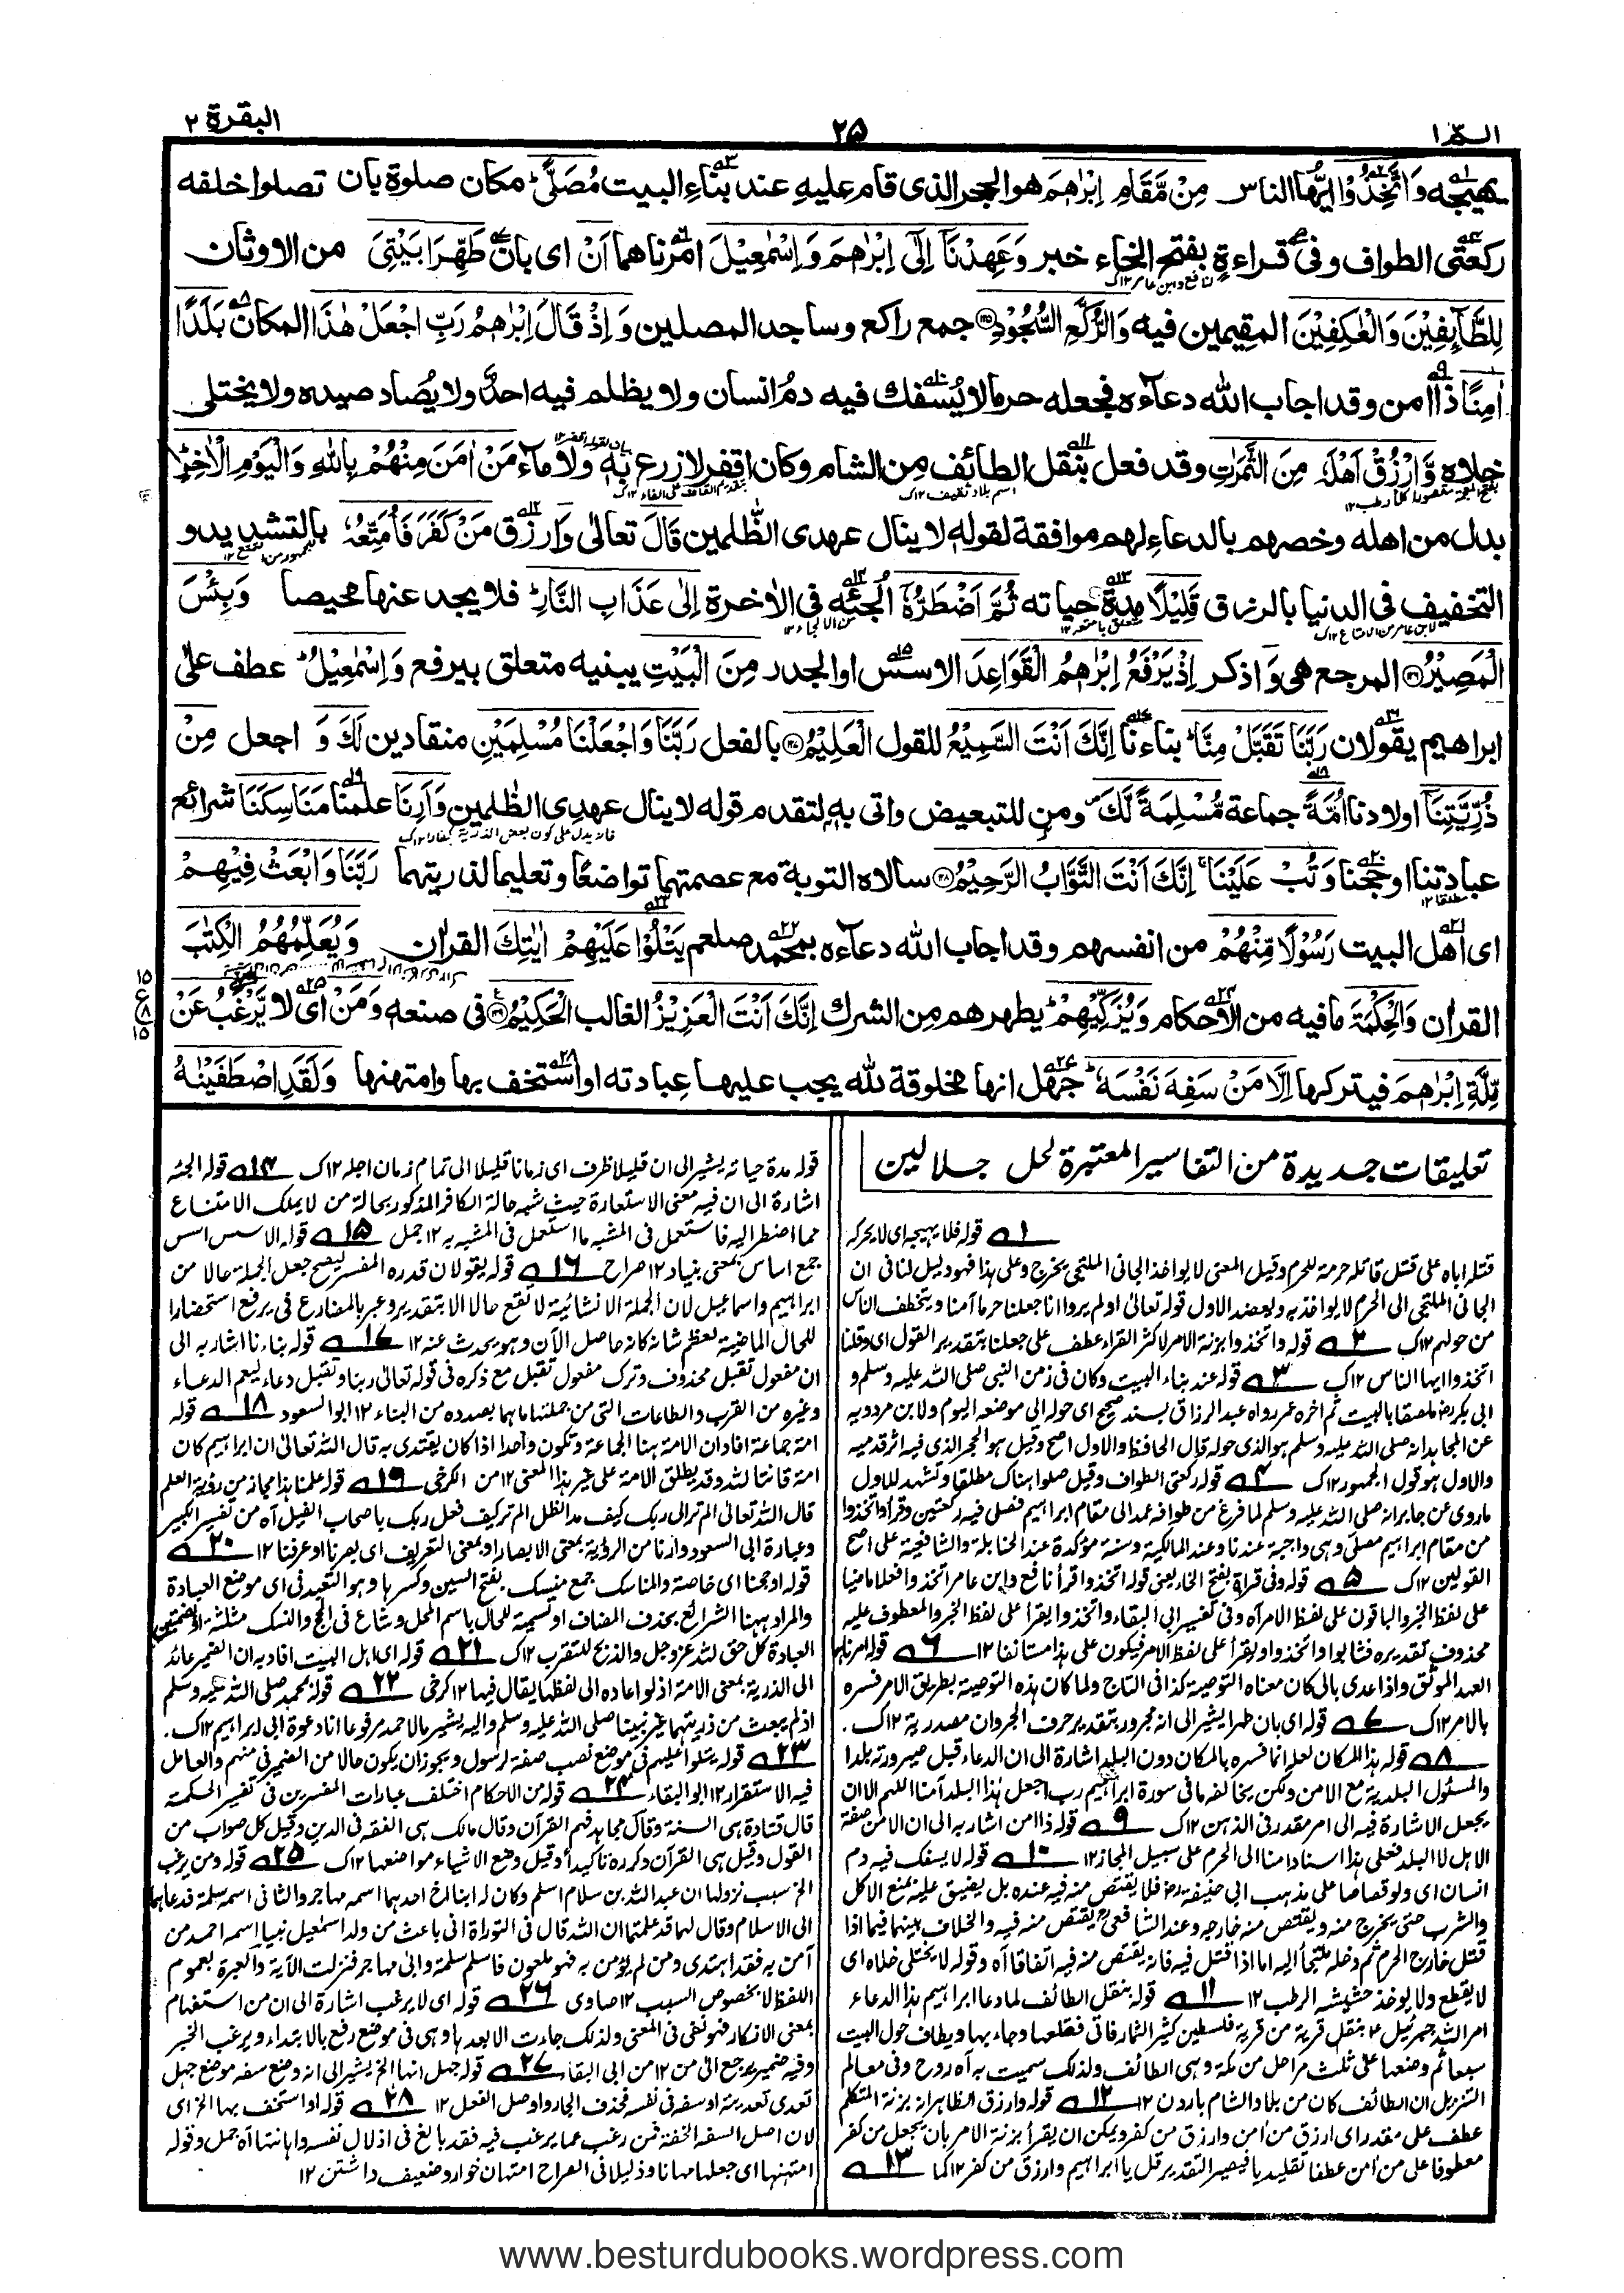 البقرة ٢
٢٥
الــمّ ١
يهيجه وَاتَّخِذُوْا ايها الناس مِنْ مَّقَامِ اِبْرٰهٖمَ هو الحجر الذى قام عليه عند بناء البيت مُصَلًّى مكان صلوة بان تصلوا خلفه
ركعتى الطواف وفى قراءة بفتح الخاء خبر وَعَهِدْنَآ اِلٰٓى اِبْرٰهٖمَ وَاِسْمٰعِيْلَ امرناهما اَنْ اى بان طَهِّرَا بَيْتِىَ من الاوثان
لِلطَّآئِفِيْنَ وَالْعٰكِفِيْنَ المقيمين فيه وَالرُّكَّعِ السُّجُوْدِ ۝ جمع راكع وساجد المصلين وَاِذْ قَالَ اِبْرٰهٖمُ رَبِّ اجْعَلْ هٰذَا المكان بَلَدًا
اٰمِنًا ذا امن وقد اجاب الله دعاءه فجعله حرما لا يُسفك فيه دمُ انسان ولا يظلم فيه احدٌ ولا يُصاد صيده ولا يختلى
خلاه وَّارْزُقْ اَهْلَهٗ مِنَ الثَّمَرٰتِ وقد فعل بنقل الطائف من الشام وكان اقفر لا زرع به ولا ماء مَنْ اٰمَنَ مِنْهُمْ بِاللّٰهِ وَالْيَوْمِ الْاٰخِرِ
بدل من اهله وخصهم بالدعاء لهم موافقة لقوله لا ينال عهدى الظّٰلمين قَالَ تعالى وَ ارزق مَنْ كَفَرَ فَاُمَتِّعُهٗ بالتشديد و
التخفيف فى الدنيا بالرزق قَلِيْلًا مدة حياته ثُمَّ اَضْطَرُّهٗٓ اُلجئه فى الاٰخرة اِلٰى عَذَابِ النَّارِ فلا يجد عنها محيصا وَبِئْسَ
الْمَصِيْرُ ۝ المرجع هى وَ اذكر اِذْ يَرْفَعُ اِبْرٰهٖمُ الْقَوَاعِدَ الاسس او الجدر مِنَ الْبَيْتِ يبنيه متعلق بيرفع وَاِسْمٰعِيْلُ عطف على
ابراهيم يقولان رَبَّنَا تَقَبَّلْ مِنَّا بناءنا اِنَّكَ اَنْتَ السَّمِيْعُ للقول الْعَلِيْمُ ۝ بالفعل رَبَّنَا وَاجْعَلْنَا مُسْلِمَيْنِ منقادين لَكَ وَ اجعل مِنْ
ذُرِّيَّتِنَآ اولادنا اُمَّةً جماعة مُّسْلِمَةً لَّكَ ومن للتبعيض واتى به لتقدم قوله لا ينال عهدى الظّٰلمين وَاَرِنَا علمنا مَنَاسِكَنَا شرائع
عبادتنا او حجنا وَتُبْ عَلَيْنَا اِنَّكَ اَنْتَ التَّوَّابُ الرَّحِيْمُ ۝ سالاه التوبة مع عصمتهما تواضعًا وتعليما لذريتهما رَبَّنَا وَابْعَثْ فِيْهِمْ
اى اهل البيت رَسُوْلًا مِّنْهُمْ من انفسهم وقد اجاب الله دعاءه بمحمد صلعم يَتْلُوْا عَلَيْهِمْ اٰيٰتِكَ القراٰن وَيُعَلِّمُهُمُ الْكِتٰبَ
القراٰن وَالْحِكْمَةَ ما فيه من الاحكام وَيُزَكِّيْهِمْ يطهرهم من الشرك اِنَّكَ اَنْتَ الْعَزِيْزُ الغالب الْحَكِيْمُ ۝ فى صنعه وَمَنْ اى لا يَّرْغَبُ عَنْ
مِّلَّةِ اِبْرٰهٖمَ فيتركها اِلَّا مَنْ سَفِهَ نَفْسَهٗ جهل انها مخلوقة لله يجب عليها عبادته او استخف بها وامتهنها وَلَقَدِ اصْطَفَيْنٰهُ
تعليقات جديدة من التفاسير المعتبرة لحل جلالين
١ قوله فلا يهيجه اى لا يحركه
قتله اباه على قتل قاتله حرمة للحرم وقيل المعنى لا يواخذ الجانى الملتجى بخروج وعلى هذا فهو دليل لنا فى ان
الجانى الملتجى الى الحرم لا يواخذ به ويعضد الاول قوله تعالى اولم يروا انا جعلنا حرما آمنا ويتخطف الناس
من حولهم ١٢ك ٢ قوله واتخذوا بزنة الامر لاكثر القراء عطف على جعلنا بتقدير القول اى وقلنا
اتخذوا ايها الناس ١٢ك ٣ قوله عند بناء البيت وكان فى زمن النبى صلى الله عليه وسلم و
ابى بكر ملصقا بالبيت ثم اخره عمر رواه عبد الرزاق بسند صحيح اى حوله الى موضعه اليوم ولابن مردويه
عن المجاهد انه صلى الله عليه وسلم هو الذى حوله قال الحافظ والاول اصح وقيل هو الحجر الذى فيه اثر قدميه
والاول هو قول الجمهور ١٢ك ٤ قوله ركعتى الطواف وقيل صلوا هناك مطلقا وتشهد للاول
ماروى عن جابر انه صلى الله عليه وسلم لما فرغ من طوافه عمد الى مقام ابراهيم فصلى فيه ركعتين وقرأ واتخذوا
من مقام ابراهيم مصلى وهى واجبة عندنا وعند المالكية وسنة مؤكدة عند الحنابلة والشافعية على اصح
القولين ١٢ك ٥ قوله وفى قراءة بفتح الخاء يعنى قوله اتخذوا قرأ نافع وابن عامر اتخذوا فعلا ماضيا
على لفظ الخبر والباقون على لفظ الامر آه وفى تفسير ابى البقاء واتخذوا يقرأ على لفظ الخبر والمعطوف عليه
محذوف تقديره فثابوا واتخذوا ويقرأ على لفظ الامر فيكون على هذا مستانفا ١٢ ٦ قوله امرناهما
العهد الموثق واذا عدى بالى كان معناه التوصية كذا فى التاج ولما كان هذه التوصية بطريق الامر فسره
بالامر ١٢ك ٧ قوله اى بان طهرا يشير الى انه مجرور بتقدير حرف الجر وان مصدرية ١٢ك
٨ قوله هذا المكان لعله انما فسره بالمكان دون البلد اشارة الى ان الدعاء قبل صيرورته بلدا
والمسئول البلدية مع الامن ولكن يخالفه ما فى سورة ابراهيم رب اجعل هذا البلد آمنا اللهم الا ان
يجعل الاشارة فيه الى امر مقدر فى الذهن ١٢ك ٩ قوله ذا امن اشار به الى ان الامن صفة
الاهل لا البلد فعلى هذا اسناد امنا الى الحرم على سبيل المجاز ١٢ ١٠ قوله لا يسفك فيه دم
انسان اى ولو قصاصا على مذهب ابى حنيفة رح فلا يقتص منه فيه عنده بل يضيق عليه بمنع الاكل
والشرب حتى يخرج منه ويقتص منه خارجه وعند الشافعى يقتص منه فيه والخلاف بينهما فيما اذا
قتل خارج الحرم ثم دخله ملتجأ اليه اما اذا قتل فيه فانه يقتص منه فيه اتفاقا آه وقوله لا يختلى خلاه اى
لا يقطع ولا يوخذ حشيشه الرطب ١٢ ١١ قوله بنقل الطائف لما دعا ابراهيم بهذا الدعاء
امر الله جبرئيل ع بنقل قرية من قرية فلسطين كثير الثمار فاتى فقلعها وجاء بها ويطاف حول البيت
سبعا ثم وضعها على ثلث مراحل من مكة وهى الطائف ولذلك سميت به آه روح وفى معالم
التنزيل ان الطائف كان من بلاد الشام باردون ١٢ ١٢ قوله وارزق الظاهر انه بزنة المتكلم
عطف على مقدر اى ارزق من آمن وارزق من كفر ويمكن ان يقرأ بزنة الامر بان يجعل من كفر
معطوفا على من آمن عطفا تقليديا فيصير التقدير قل يا ابراهيم وارزق من كفر ١٢ كما ١٣
قوله مدة حياته يشير الى ان قليلا ظرف اى زمانا قليلا الى تمام زمان اجله ١٢ك ١٤ قوله الجئه
اشارة الى ان فيه معنى الاستعارة حيث شبه حالة الكافر المذكور بحالة من لا يملك الامتناع
مما اضطر اليه فاستعمل فى المشبه ما استعمل فى المشبه به ١٢ جمل ١٥ قوله الاسس اسس
جمع اساس بمعنى بنياد ١٢ صراح ١٦ قوله يقولان قدره المفسر ليصح جعل الجملة حالا من
ابراهيم واسماعيل لان الجملة الانشائية لا تقع حالا الا بتقدير وعبر بالمضارع فى يرفع استحضارا
للحال الماضية لعظم شانه كانه حاصل الآن وهو يحدث عنه ١٢ ١٧ قوله بناءنا اشار به الى
ان مفعول تقبل محذوف وترك مفعول تقبل مع ذكره فى قوله تعالى ربنا وتقبل دعاء ليعم الدعاء
وغيره من القرب والطاعات التى من جملتها ما هما بصدده من البناء ١٢ ابو السعود ١٨ قوله
امة جماعة افاد ان الامة هنا الجماعة وتكون واحدا اذا كان يقتدى به قال الله تعالى ان ابراهيم كان
امة قانتا لله وقد يطلق الامة على غير هذا المعنى ١٢ من الكرخى ١٩ قوله علمنا هذا مجاز من رؤية العلم
قال الله تعالى الم تر الى ربك كيف مد الظل الم تر كيف فعل ربك باصحاب الفيل آه من تفسير الكبير
وعبارة ابى السعود وارنا من الرؤية بمعنى الابصار او بمعنى التعريف اى بصرنا او عرفنا ١٢ ٢٠
قوله او حجنا اى خاصة والمناسك جمع منسك بفتح السين وكسرها وهو التعبد فى اى موضع العبادة
والمراد ههنا الشرائع بحذف المضاف او تسمية للحال باسم المحل وشاع فى الحج والنسك مثلثة وبضمتين
العبادة كل حق لله عز وجل والذبح للتقرب ١٢ك ٢١ قوله اى اهل البيت افاد به ان الضمير عائد
الى الذرية بمعنى الامة اذ لو اعاده الى لفظها يقال فيها ١٢ كرخى ٢٢ قوله بمحمد صلى الله عليه وسلم
اذ لم يبعث من ذريتهما غير نبينا صلى الله عليه وسلم واليه يشير ما لاحمد مرفوعا انا دعوة ابى ابراهيم ١٢ك
٢٣ قوله يتلوا عليهم فى موضع نصب صفة لرسول ويجوز ان يكون حالا من الضمير فى منهم والعامل
فيه الاستقرار ١٢ ابو البقاء ٢٤ قوله من الاحكام اختلف عبارات المفسرين فى تفسير الحكمة
قال قتادة هى السنة وقال مجاهد فهم القرآن وقال مالك هى الفقه فى الدين وقيل كل صواب من
القول وقيل هى القرآن وكرره تاكيدا وقيل وضع الاشياء مواضعها ١٢ك ٢٥ قوله ومن يرغب
الخ سبب نزولها ان عبد الله بن سلام اسلم وكان له ابنا اخ احدهما اسمه مهاجر والثانى اسمه سلمة فدعاهما
الى الاسلام وقال لهما قد علمتما ان الله قال فى التوراة انى باعث من ولد اسمعيل نبيا اسمه احمد من
آمن به فقد اهتدى ومن لم يؤمن به فهو ملعون فاسلم سلمة وابى مهاجر فنزلت الآية والعبرة بعموم
اللفظ لا بخصوص السبب ١٢ صاوى ٢٦ قوله اى لا يرغب اشارة الى ان من استفهام
بمعنى الانكار فهو نفى فى المعنى ولذلك جاءت الا بعدها وهى فى موضع رفع بالابتداء ويرغب الخبر
وفيه ضمير يرجع الى من ١٢ من ابى البقاء ٢٧ قوله جهل انها الخ يشير الى انه وضع سفه موضع جهل
تعدى تعديته او سفه فى نفسه فحذف الجار واوصل الفعل ١٢ ٢٨ قوله او استخف بها الخ اى
لان اصل السفه الخفة فمن رغب عما يرغب فيه فقد بالغ فى اذلال نفسه واهانتها آه جمل وقوله
امتهنها اى جعلها مهانا وذليلا فى الصراح امتهان خوار وضعيف داشتن ١٢
www.besturdubooks.wordpress.com